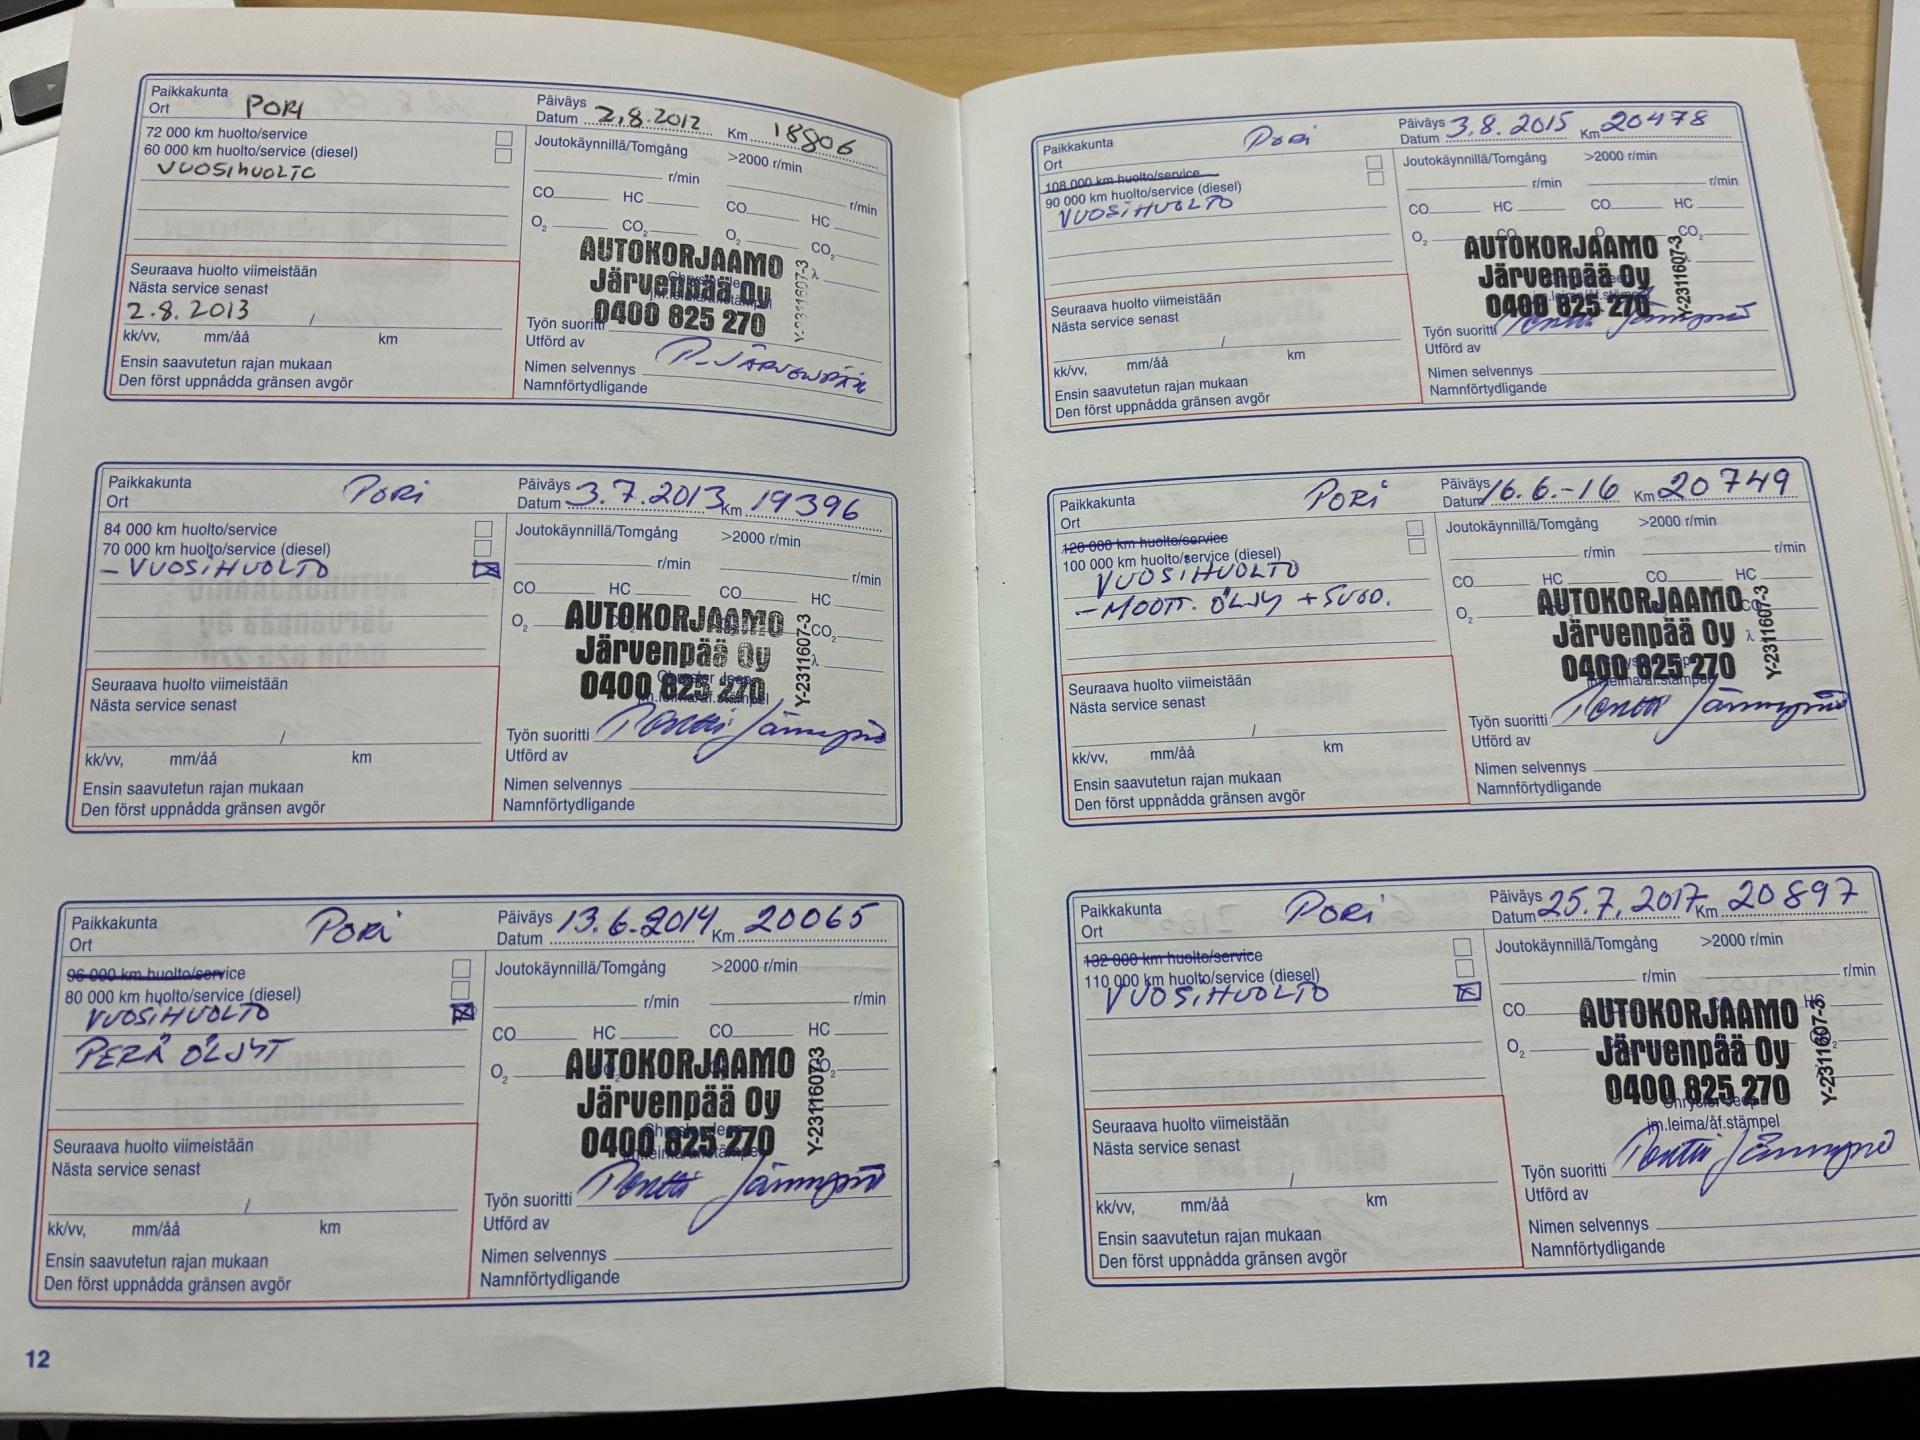 Paikkakunta
Ort PORI
Päiväys
Datum 2.8.2012 Km 18806
72 000 km huolto/service
60 000 km huolto/service (diesel)
VUOSIHUOLTO
Joutokäynnillä/Tomgång >2000 r/min
r/min r/min
CO HC CO HC
O2 CO2 O2 CO2
λ
AUTOKORJAAMO
Järvenpää Oy
0400 825 270
Y-2311607-3
Seuraava huolto viimeistään
Nästa service senast
2.8.2013 /
kk/vv, mm/åå km
Ensin saavutetun rajan mukaan
Den först uppnådda gränsen avgör
Työn suoritti
Utförd av
Nimen selvennys P. JÄRVENPÄÄ
Namnförtydligande
Paikkakunta PORI
Ort
Päiväys
Datum 3.7.2013 Km 19396
84 000 km huolto/service
70 000 km huolto/service (diesel)
- VUOSIHUOLTO
Joutokäynnillä/Tomgång >2000 r/min
r/min r/min
CO HC CO HC
O2 CO2
λ
AUTOKORJAAMO
Järvenpää Oy
0400 825 270
Y-2311607-3
Chrysler Jeep
jm.leima/åf.stämpel
Seuraava huolto viimeistään
Nästa service senast
/
kk/vv, mm/åå km
Ensin saavutetun rajan mukaan
Den först uppnådda gränsen avgör
Työn suoritti
Utförd av
Nimen selvennys
Namnförtydligande
Paikkakunta PORI
Ort
Päiväys
Datum 13.6.2014 Km 20065
96 000 km huolto/service
80 000 km huolto/service (diesel)
VUOSIHUOLTO
PERÄ ÖLJYT
Joutokäynnillä/Tomgång >2000 r/min
r/min r/min
CO HC CO HC
O2
AUTOKORJAAMO
Järvenpää Oy
0400 825 270
Y-2311607-3
Seuraava huolto viimeistään
Nästa service senast
/
kk/vv, mm/åå km
Ensin saavutetun rajan mukaan
Den först uppnådda gränsen avgör
Työn suoritti
Utförd av
Nimen selvennys
Namnförtydligande
12
Paikkakunta PORI
Ort
Päiväys
Datum 3.8.2015 Km 20478
108 000 km huolto/service
90 000 km huolto/service (diesel)
VUOSIHUOLTO
Joutokäynnillä/Tomgång >2000 r/min
r/min r/min
CO HC CO HC
O2 CO2
AUTOKORJAAMO
Järvenpää Oy
0400 825 270
Y-2311607-3
Seuraava huolto viimeistään
Nästa service senast
/
kk/vv, mm/åå km
Ensin saavutetun rajan mukaan
Den först uppnådda gränsen avgör
Työn suoritti
Utförd av
Nimen selvennys
Namnförtydligande
Paikkakunta PORI
Ort
Päiväys
Datum 16.6.-16 Km 20749
120 000 km huolto/service
100 000 km huolto/service (diesel)
VUOSIHUOLTO
- MOOTT. ÖLJY + SUOD.
Joutokäynnillä/Tomgång >2000 r/min
r/min r/min
CO HC CO HC
O2
λ
AUTOKORJAAMO
Järvenpää Oy
0400 825 270
Y-2311607-3
jm.leima/åf.stämpel
Seuraava huolto viimeistään
Nästa service senast
/
kk/vv, mm/åå km
Ensin saavutetun rajan mukaan
Den först uppnådda gränsen avgör
Työn suoritti
Utförd av
Nimen selvennys
Namnförtydligande
Paikkakunta PORI
Ort
Päiväys
Datum 25.7.2017 Km 20897
132 000 km huolto/service
110 000 km huolto/service (diesel)
VUOSIHUOLTO
Joutokäynnillä/Tomgång >2000 r/min
r/min r/min
CO
O2
AUTOKORJAAMO
Järvenpää Oy
0400 825 270
Y-2311607-3
Chrysler Jeep
jm.leima/åf.stämpel
Seuraava huolto viimeistään
Nästa service senast
/
kk/vv, mm/åå km
Ensin saavutetun rajan mukaan
Den först uppnådda gränsen avgör
Työn suoritti
Utförd av
Nimen selvennys
Namnförtydligande